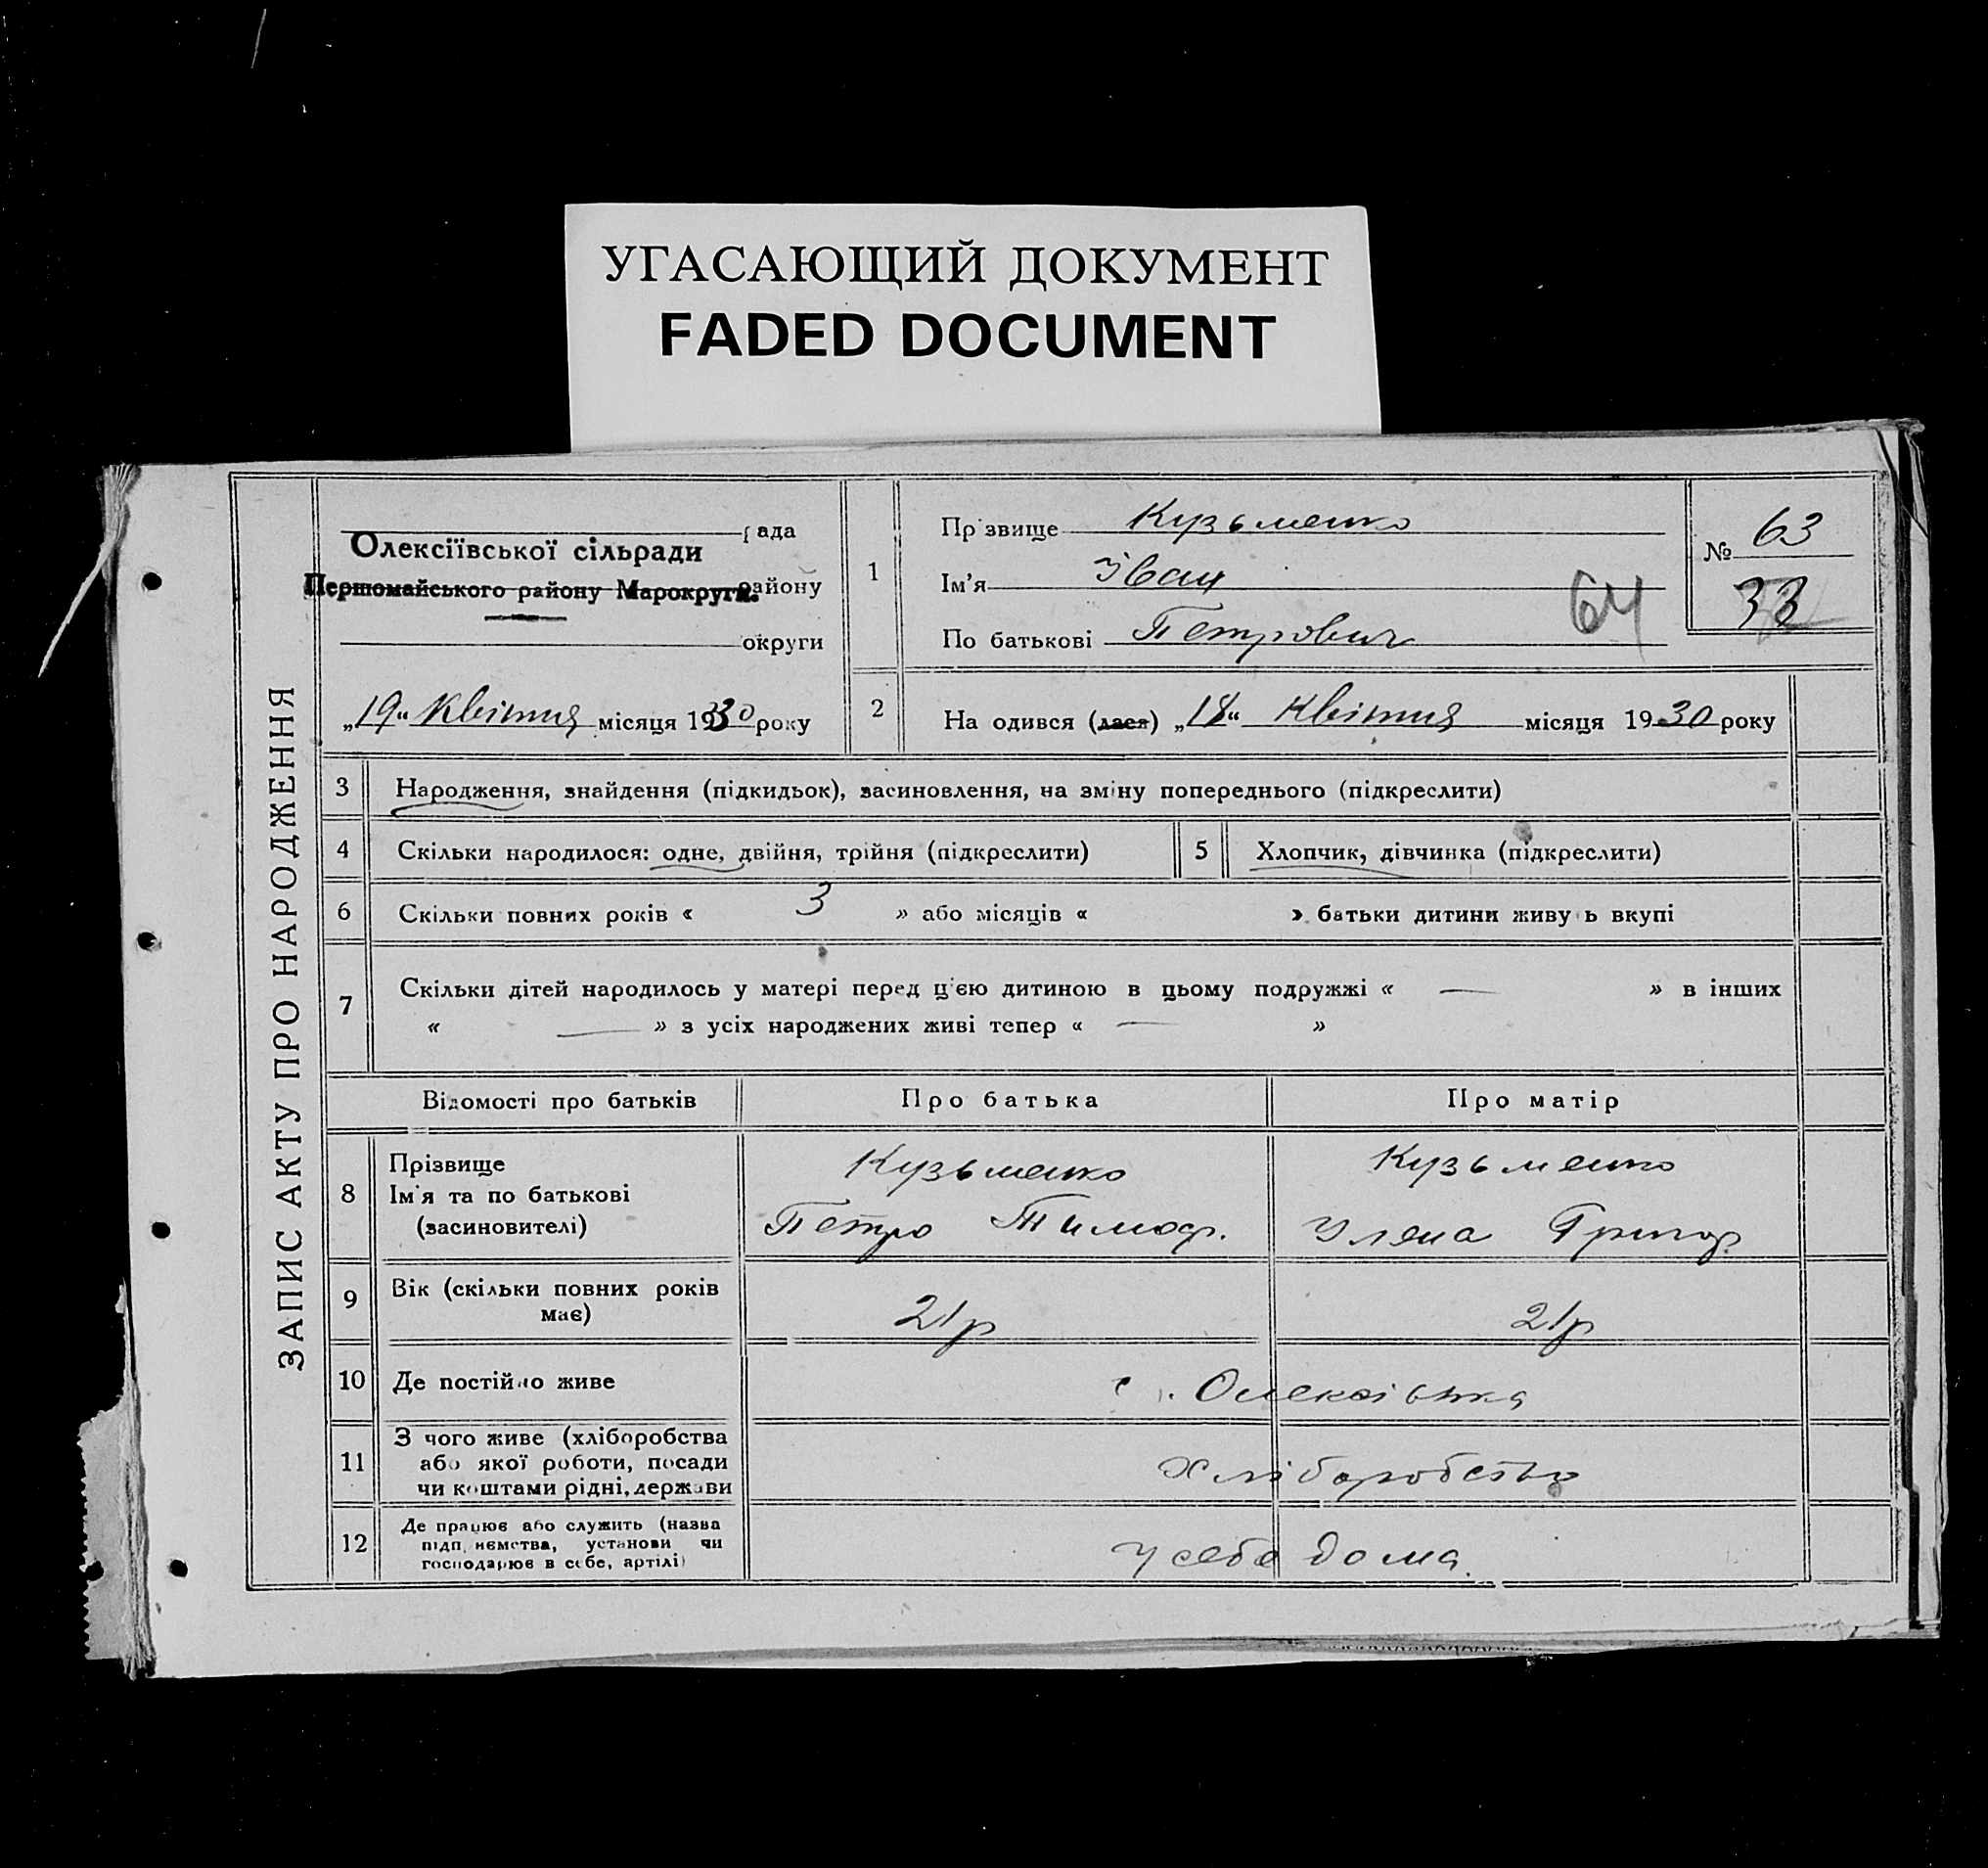 УГАСАЮЩИЙ ДОКУМЕНТ
FADED DOCUMENT
ЗАПИС АКТУ ПРО НАРОДЖЕННЯ
рада
Олексіївської сільради
Першомайського району Марокруги.
району
округи
„19“ Квітня місяця 1930 року
1
Пр звище Кузьменко
Ім'я Іван
По батькові Петрович
64
№ 63
33
2
На одився (лася) „18“ Квітня місяця 1930 року
3 Народження, знайдення (підкидьок), засиновлення, на зміну попереднього (підкреслити)
4 Скільки народилося: одне, двійня, трійня (підкреслити)
5 Хлопчик, дівчинка (підкреслити)
6 Скільки повних років « 3 » або місяців « » батьки дитини живу ь вкупі
7 Скільки дітей народилось у матері перед ц'єю дитиною в цьому подружжі « — » в інших
« — » з усіх народжених живі тепер « — »
Відомості про батьків Про батька Про матір
8 Прізвище
Ім'я та по батькові
(засиновителі)
Кузьменко
Петро Тимоф.
Кузьменко
Улена Григор.
9 Вік (скільки повних років
має)
21р
21р
10 Де постійно живе
с. Олексієвка
11 З чого живе (хліборобства
або якої роботи, посади
чи коштами рідні, держави
хліборобство
12 Де працює або служить (назва
підп иємства, установи чи
господарює в себе, артілі)
у себе дома.